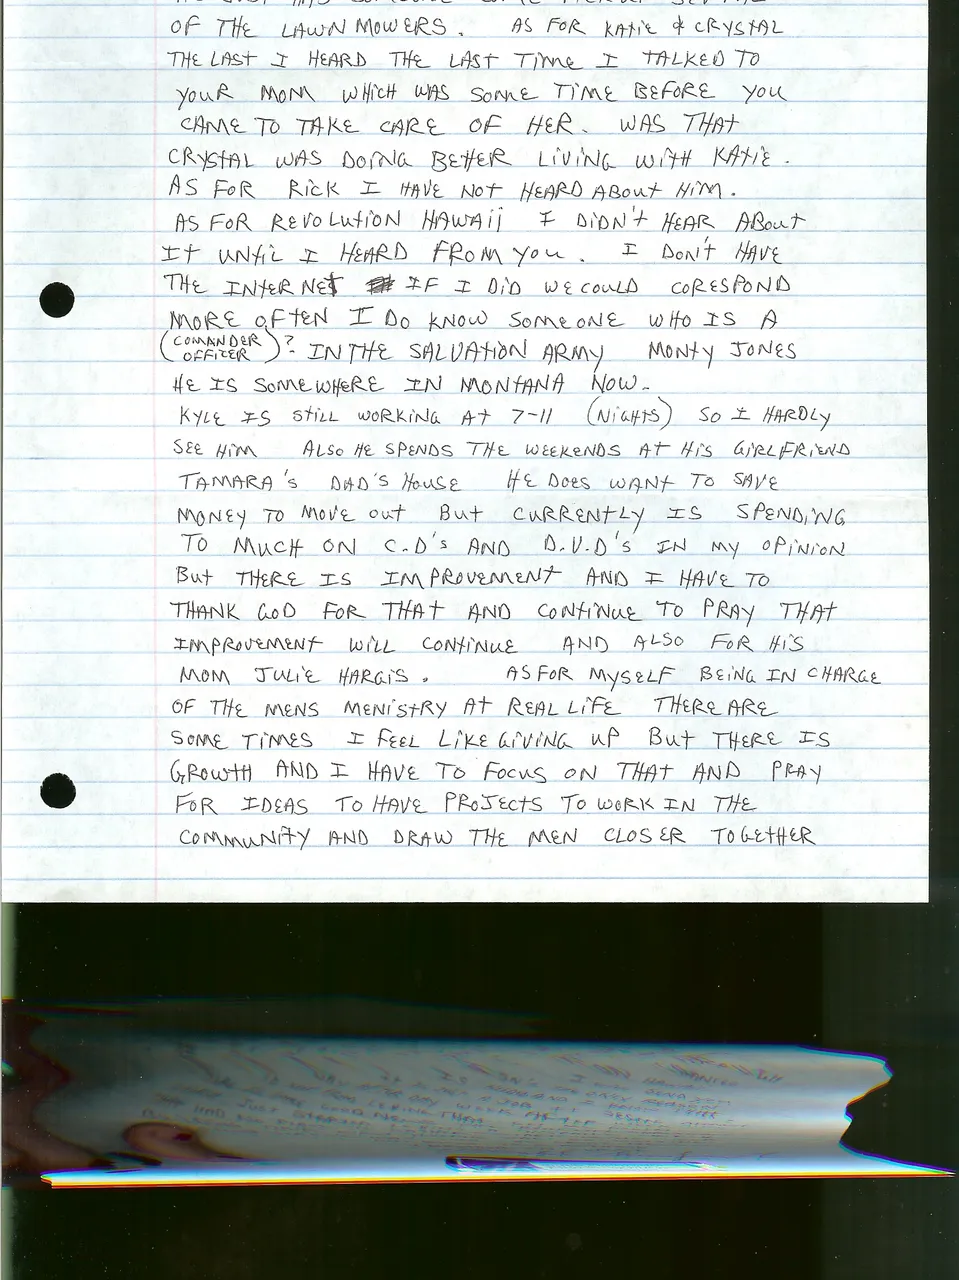 OF THE LAWN MOWERS. AS FOR KATIE & CRYSTAL
THE LAST I HEARD THE LAST TIME I TALKED TO
YOUR MOM WHICH WAS SOME TIME BEFORE YOU
CAME TO TAKE CARE OF HER. WAS THAT
CRYSTAL WAS DOING BETTER LIVING WITH KATIE.
AS FOR RICK I HAVE NOT HEARD ABOUT HIM.
AS FOR REVOLUTION HAWAII I DIDN'T HEAR ABOUT
IT UNTIL I HEARD FROM YOU. I DON'T HAVE
THE INTERNET IF I DID WE COULD CORESPOND
MORE OFTEN I DO KNOW SOMEONE WHO IS A
(COMANDER OFFICER)? IN THE SALVATION ARMY MONTY JONES
HE IS SOMEWHERE IN MONTANA NOW.
KYLE IS STILL WORKING AT 7-11 (NIGHTS) SO I HARDLY
SEE HIM ALSO HE SPENDS THE WEEKENDS AT HIS GIRLFRIEND
TAMARA'S DAD'S HOUSE HE DOES WANT TO SAVE
MONEY TO MOVE OUT BUT CURRENTLY IS SPENDING
TO MUCH ON C.D'S AND D.V.D'S IN MY OPINION
BUT THERE IS IMPROVEMENT AND I HAVE TO
THANK GOD FOR THAT AND CONTINUE TO PRAY THAT
IMPROVEMENT WILL CONTINUE AND ALSO FOR HIS
MOM JULIE HARGIS. AS FOR MYSELF BEING IN CHARGE
OF THE MENS MENISTRY AT REAL LIFE THERE ARE
SOME TIMES I FEEL LIKE GIVING UP BUT THERE IS
GROWTH AND I HAVE TO FOCUS ON THAT AND PRAY
FOR IDEAS TO HAVE PROJECTS TO WORK IN THE
COMMUNITY AND DRAW THE MEN CLOSER TOGETHER